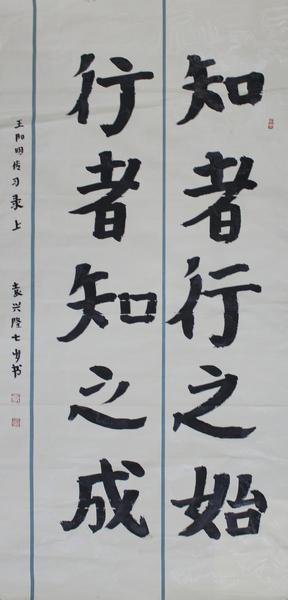 知者行之始
行者知之成
王阳明传习录上
袁兴隆七岁书